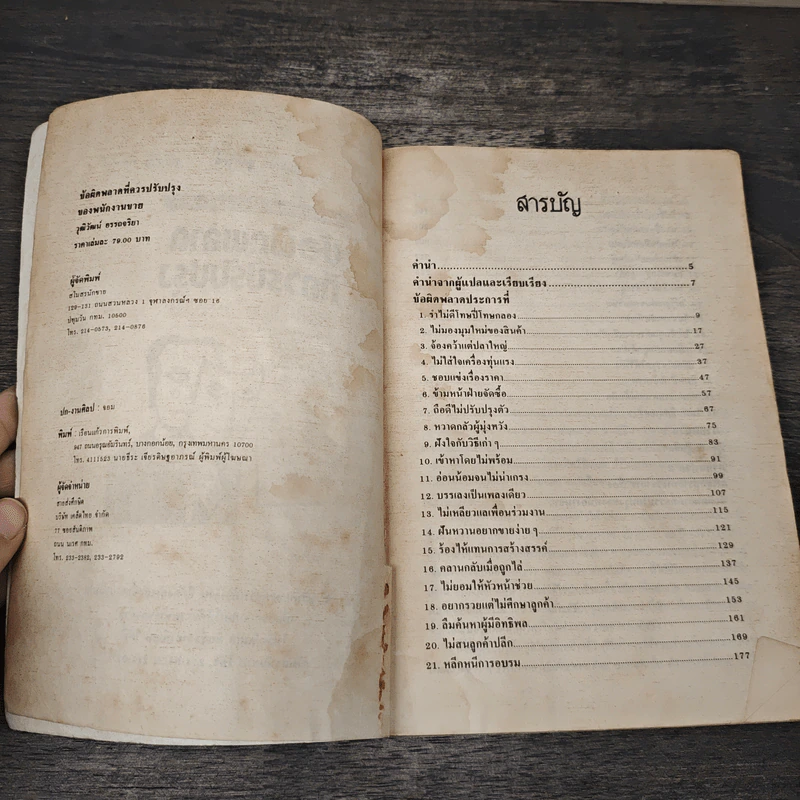 ข้อผิดพลาดที่ควรปรับปรุง
ของพนักงานขาย
วุฒิวัฒน์ อรรถจริยา
ราคาเล่มละ 79.00 บาท
ผู้จัดพิมพ์
สโมสรนักขาย
129-131 ถนนสวนหลวง 1 จุฬาลงกรณ์ฯ ซอย 16
ปทุมวัน กทม. 10500
โทร. 214-0573, 214-0876
ปก-งานศิลป์ : จอม
พิมพ์ : เรือนแก้วการพิมพ์,
947 ถนนอรุณอัมรินทร์, บางกอกน้อย, กรุงเทพมหานคร 10700
โทร. 4111523 นายธีระ เจียรดิษฐอาภรณ์ ผู้พิมพ์ผู้โฆษณา
ผู้จัดจำหน่าย
สายส่งศึกษิต
บริษัท เคล็ดไทย จำกัด
77 ซอยสันติภาพ
ถนน นเรศ กทม.
โทร. 233-2382, 233-2792
สารบัญ
คำนำ 5
คำนำจากผู้แปลและเรียบเรียง 7
ข้อผิดพลาดประการที่
1. รำไม่ดีโทษปี่โทษกลอง 9
2. ไม่มองมุมใหม่ของสินค้า 17
3. จ้องคว้าแต่ปลาใหญ่ 27
4. ไม่ใส่ใจเครื่องทุ่นแรง 37
5. ชอบแข่งเรื่องราคา 47
6. ข้ามหน้าฝ่ายจัดซื้อ 57
7. ถือดีไม่ปรับปรุงตัว 67
8. หวาดกลัวผู้มุ่งหวัง 75
9. ฝังใจกับวิธีเก่า ๆ 83
10. เข้าหาโดยไม่พร้อม 91
11. อ่อนน้อมจนไม่น่าเกรง 99
12. บรรเลงเป็นเพลงเดียว 107
13. ไม่เหลียวแลเพื่อนร่วมงาน 115
14. ฝันหวานอยากขายง่าย ๆ 121
15. ร้องไห้แทนการสร้างสรรค์ 129
16. คลานกลับเมื่อถูกไล่ 137
17. ไม่ยอมให้หัวหน้าช่วย 145
18. อยากรวยแต่ไม่ศึกษาลูกค้า 153
19. ลืมค้นหาผู้มีอิทธิพล 161
20. ไม่สนลูกค้าปลีก 169
21. หลีกหนีการอบรม 177